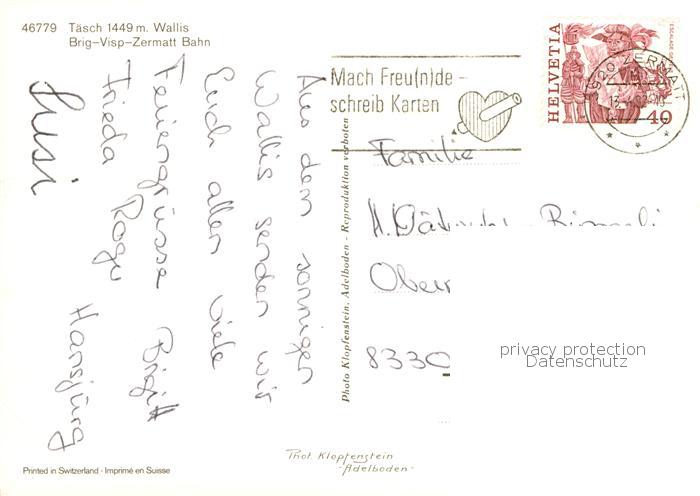 46779 Täsch 1449 m. Wallis
Brig–Visp–Zermatt Bahn
Aus dem sonnigen
Wallis senden wir
Euch allen viele
Feriengrüsse Birgitt
Frieda Roger Hansjürg
Susi
Mach Freu(n)de –
schreib Karten
HELVETIA
40
3920 ZERMATT
Familie
Ober
8330
privacy protection
Datenschutz
Photo Klopfenstein, Adelboden - Reproduktion verboten
Printed in Switzerland · Imprimé en Suisse
Phot. Klopfenstein
-Adelboden-